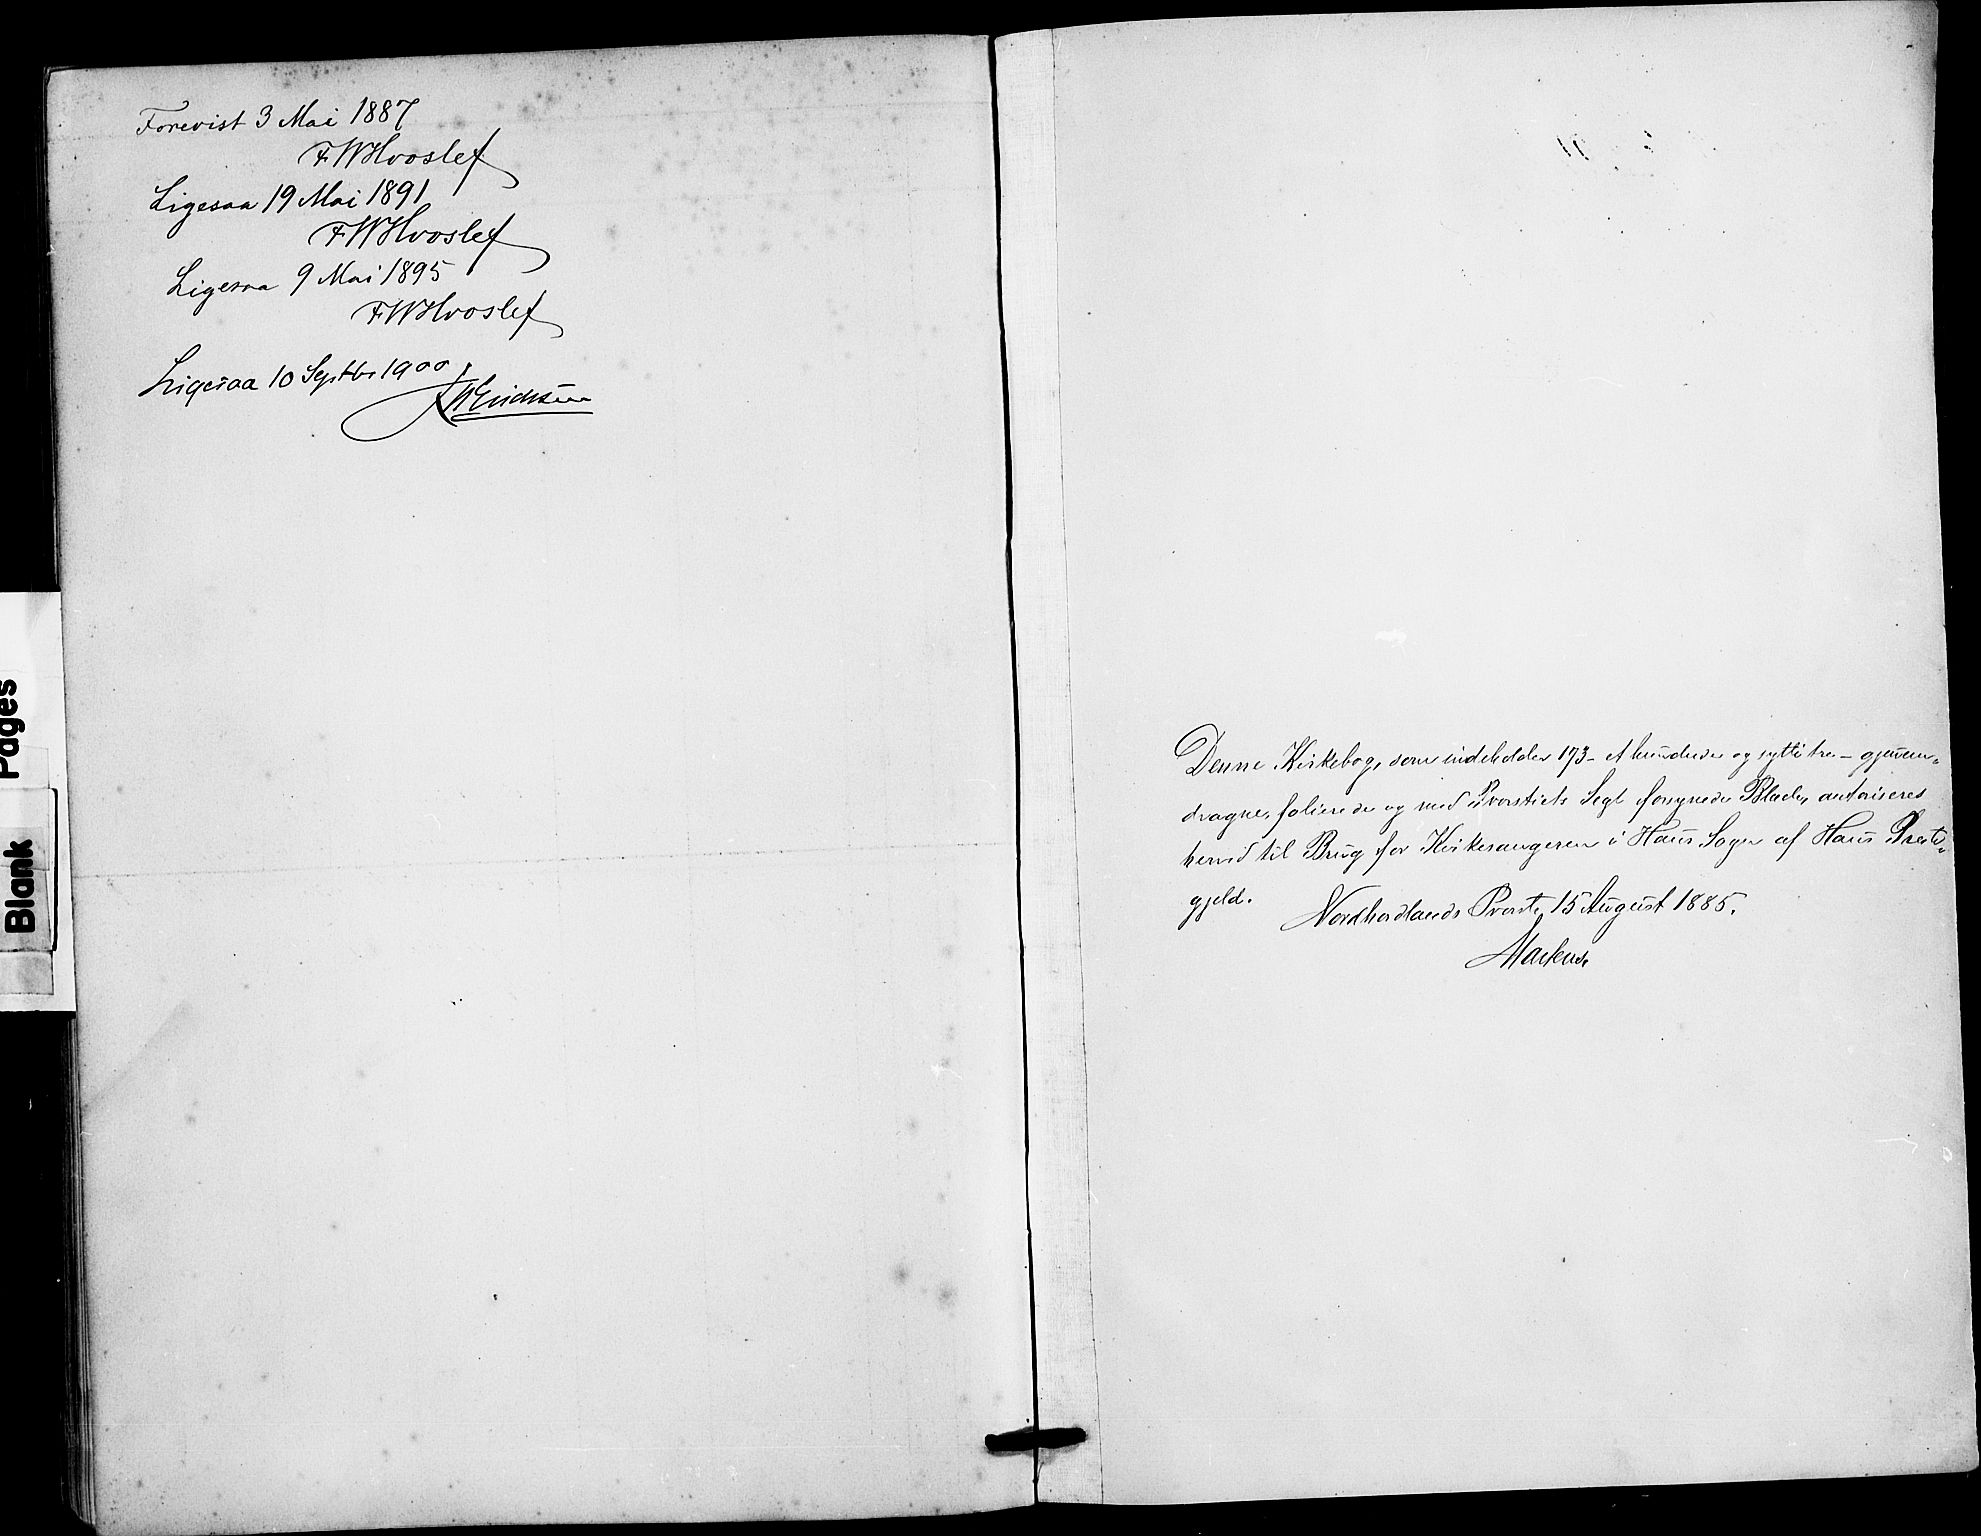 Forevist 3 Mai 1887
F. W. Hvoslef
Ligesaa 19 Mai 1891
F. W. Hvoslef
Ligesaa 9 Mai 1895
F. W. Hvoslef
Ligesaa 10 Septbr 1900
Erichsen
Blank Pages
Denne Kirkebog, som indeholder 173 - et hundrede og sytti tre - gjennem-
dragne, folierede og med Provstiets Segl forsynede Blade, autoriseres
herved til Brug for Kirkesangeren i Haus Sogn af Haus Præste-
gjeld.
Nordhordlands Provsti, 15 August 1885.